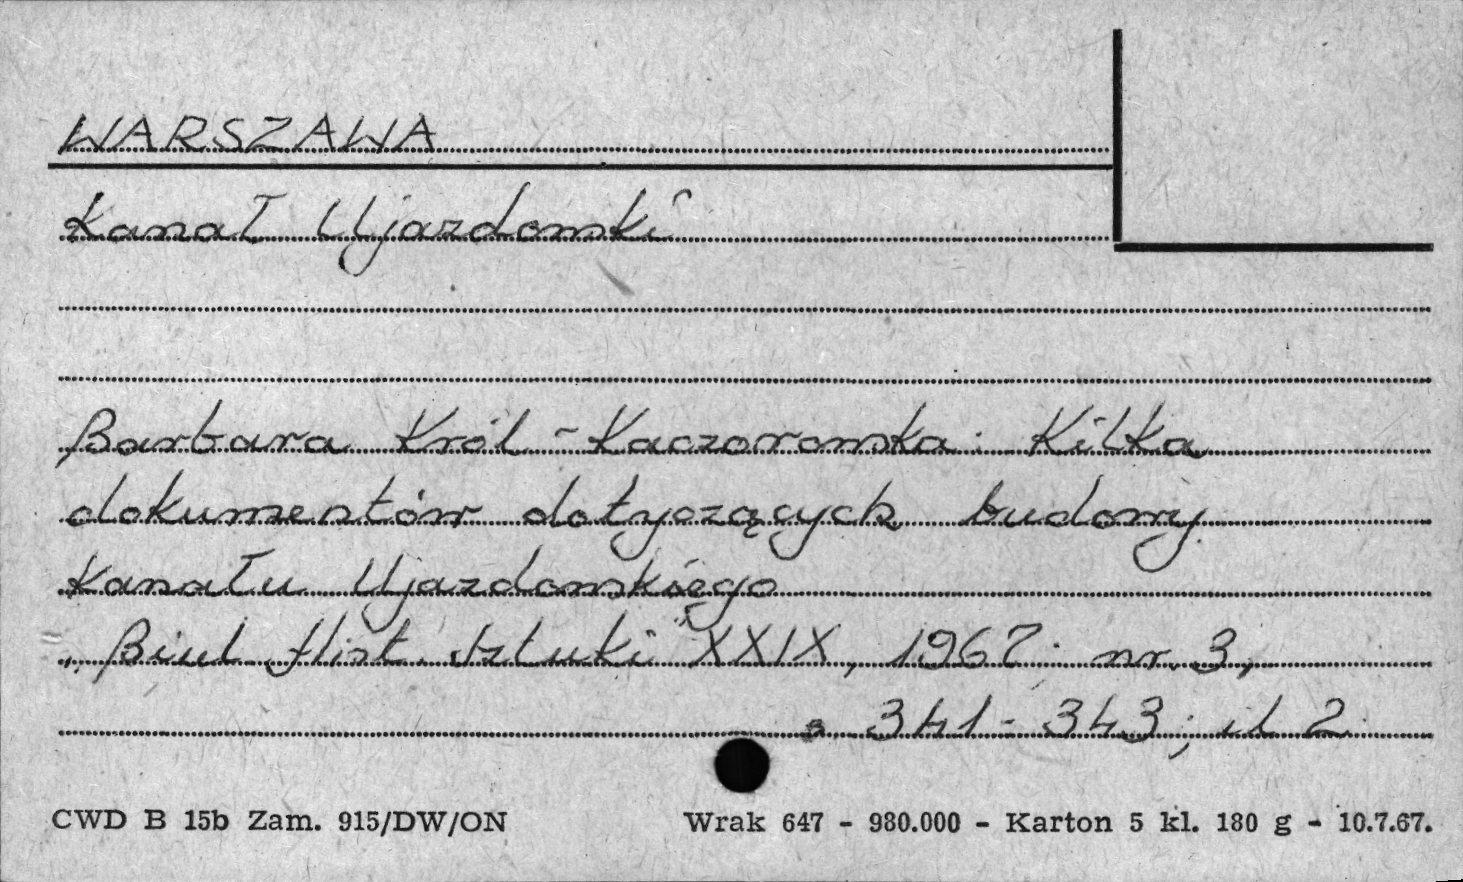 WARSZAWA
Kanał Ujazdowski
Barbara Król-Kaczorowska: Kilka
dokumentów dotyczących budowy
Kanału Ujazdowskiego
„Biul Hist. Sztuki" XXIX, 1967. nr. 3,
s. 341-343; il 2.
CWD B 15b Zam. 915/DW/ON
Wrak 647 - 980.000 - Karton 5 kl. 180 g - 10.7.67.